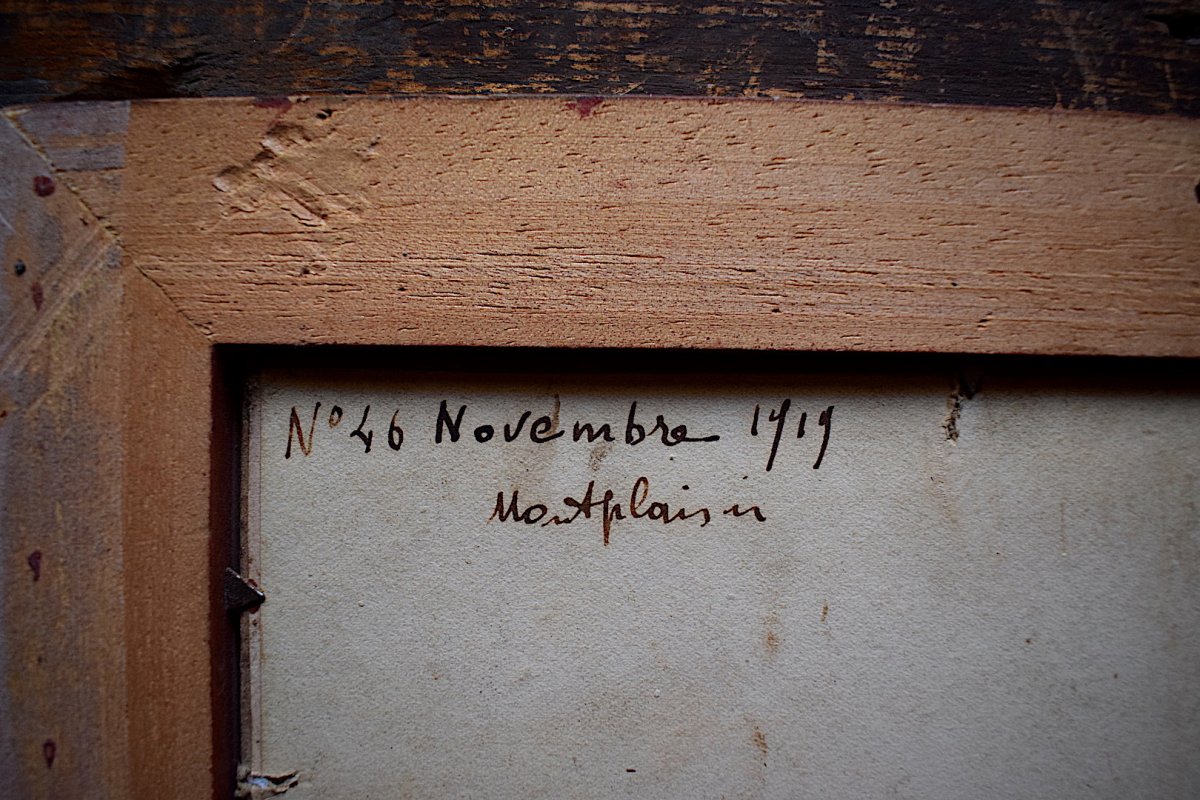 Nº 46 Novembre 1919
Montplaisir